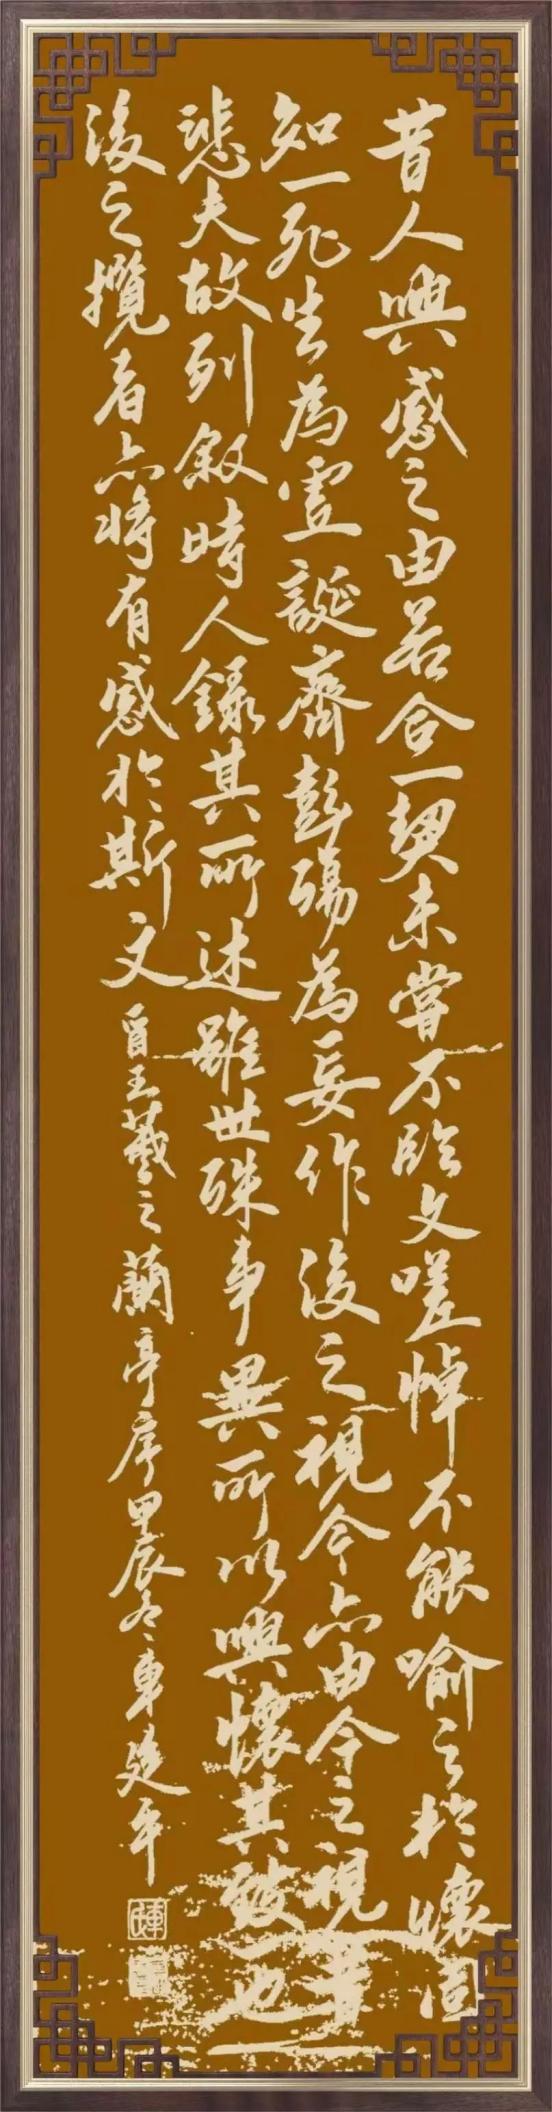 昔人興感之由若合一契未嘗不臨文嗟悼不能喻之於懷固
知一死生為虛誕齊彭殤為妄作後之視今亦由今之視昔
悲夫故列叙時人録其所述雖世殊事異所以興懷其致一也
後之攬者亦將有感於斯文晉王羲之蘭亭序甲辰冬車建平